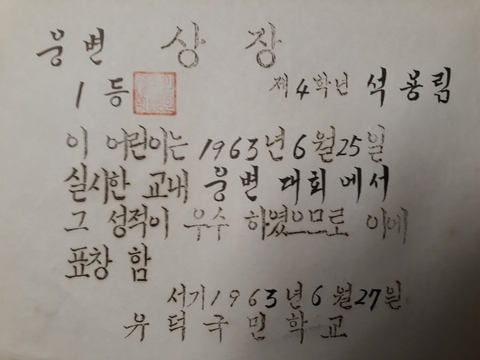 웅변 상장
1등 제4학년 석용림
이 어린이는 1963년 6월25일
실시한 교내 웅변 대회에서
그 성적이 우수 하였으므로 이에
표창 함
서기1963년6월27일
유덕국민학교